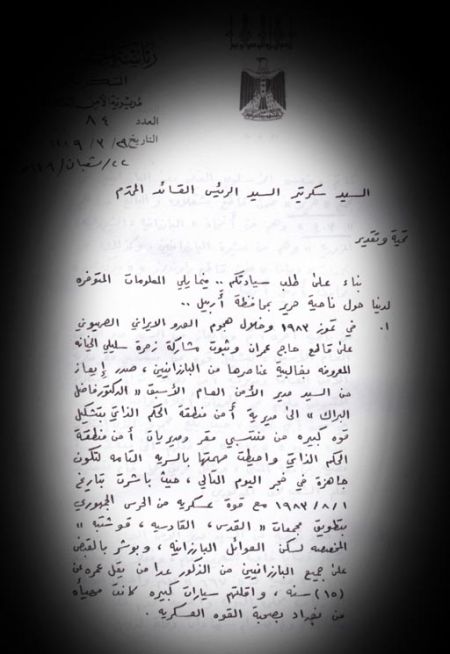 رئاسة
السكر
لمديرية الأمن
العدد ٨٤
التاريخ
شعبان
السيد سكرتير السيد الرئيس القائد المحترم
تحية وتقدير
بناء على طلب سيادتكم .. فيما يلي المعلومات المتوفره
لدينا حول ناحية حرير بمحافظة أربيل ..
١. في تموز ١٩٨٣ وخلال هجوم العدو الايراني الصهيوني
على قاطع حاج عمران وثبوت مشاركة زمرة سليلي الخيانه
المعروفه بغالبية عناصرها من البارزانيين ، صدر إيعاز
من السيد مدير الأمن العام الأسبق « الدكتور فاضل
البراك » الى مديرية أمن منطقة الحكم الذاتي بتشكيل
قوه كبيره من منتسبي مقر ومديريات أمن منطقة
الحكم الذاتي واحيطت مهمتها بالسريه التامه لتكون
جاهزة في فجر اليوم التالي ، حيث باشرت بتاريخ
١٩٨٣/٨/١ مع قوة عسكريه من الحرس الجمهوري
بتطويق مجمعات « القدس ، القادسيه ، قوشتبه »
المخصصه لسكن العوائل البارزانيه ، وبوشر بالقبض
على جميع البارزانيين من الذكور عدا من يقل عمره عن
(١٥) سنه ، واقلتهم سيارات كبيره كانت مهيأه
من بغداد بصحبة القوه العسكريه .